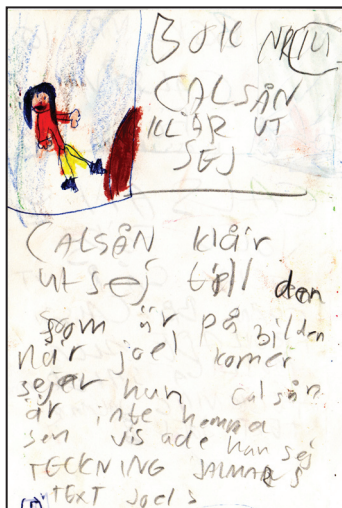 BOK NR 1
CALSÅN
KLÄR UT
SEJ
CALSÅN kläir
ut sej till den
som är på bilden
när joel komer
sejer hun calsån
är inte hemma
sen visade han sej
TECKNING JALMARS
TEXT joels